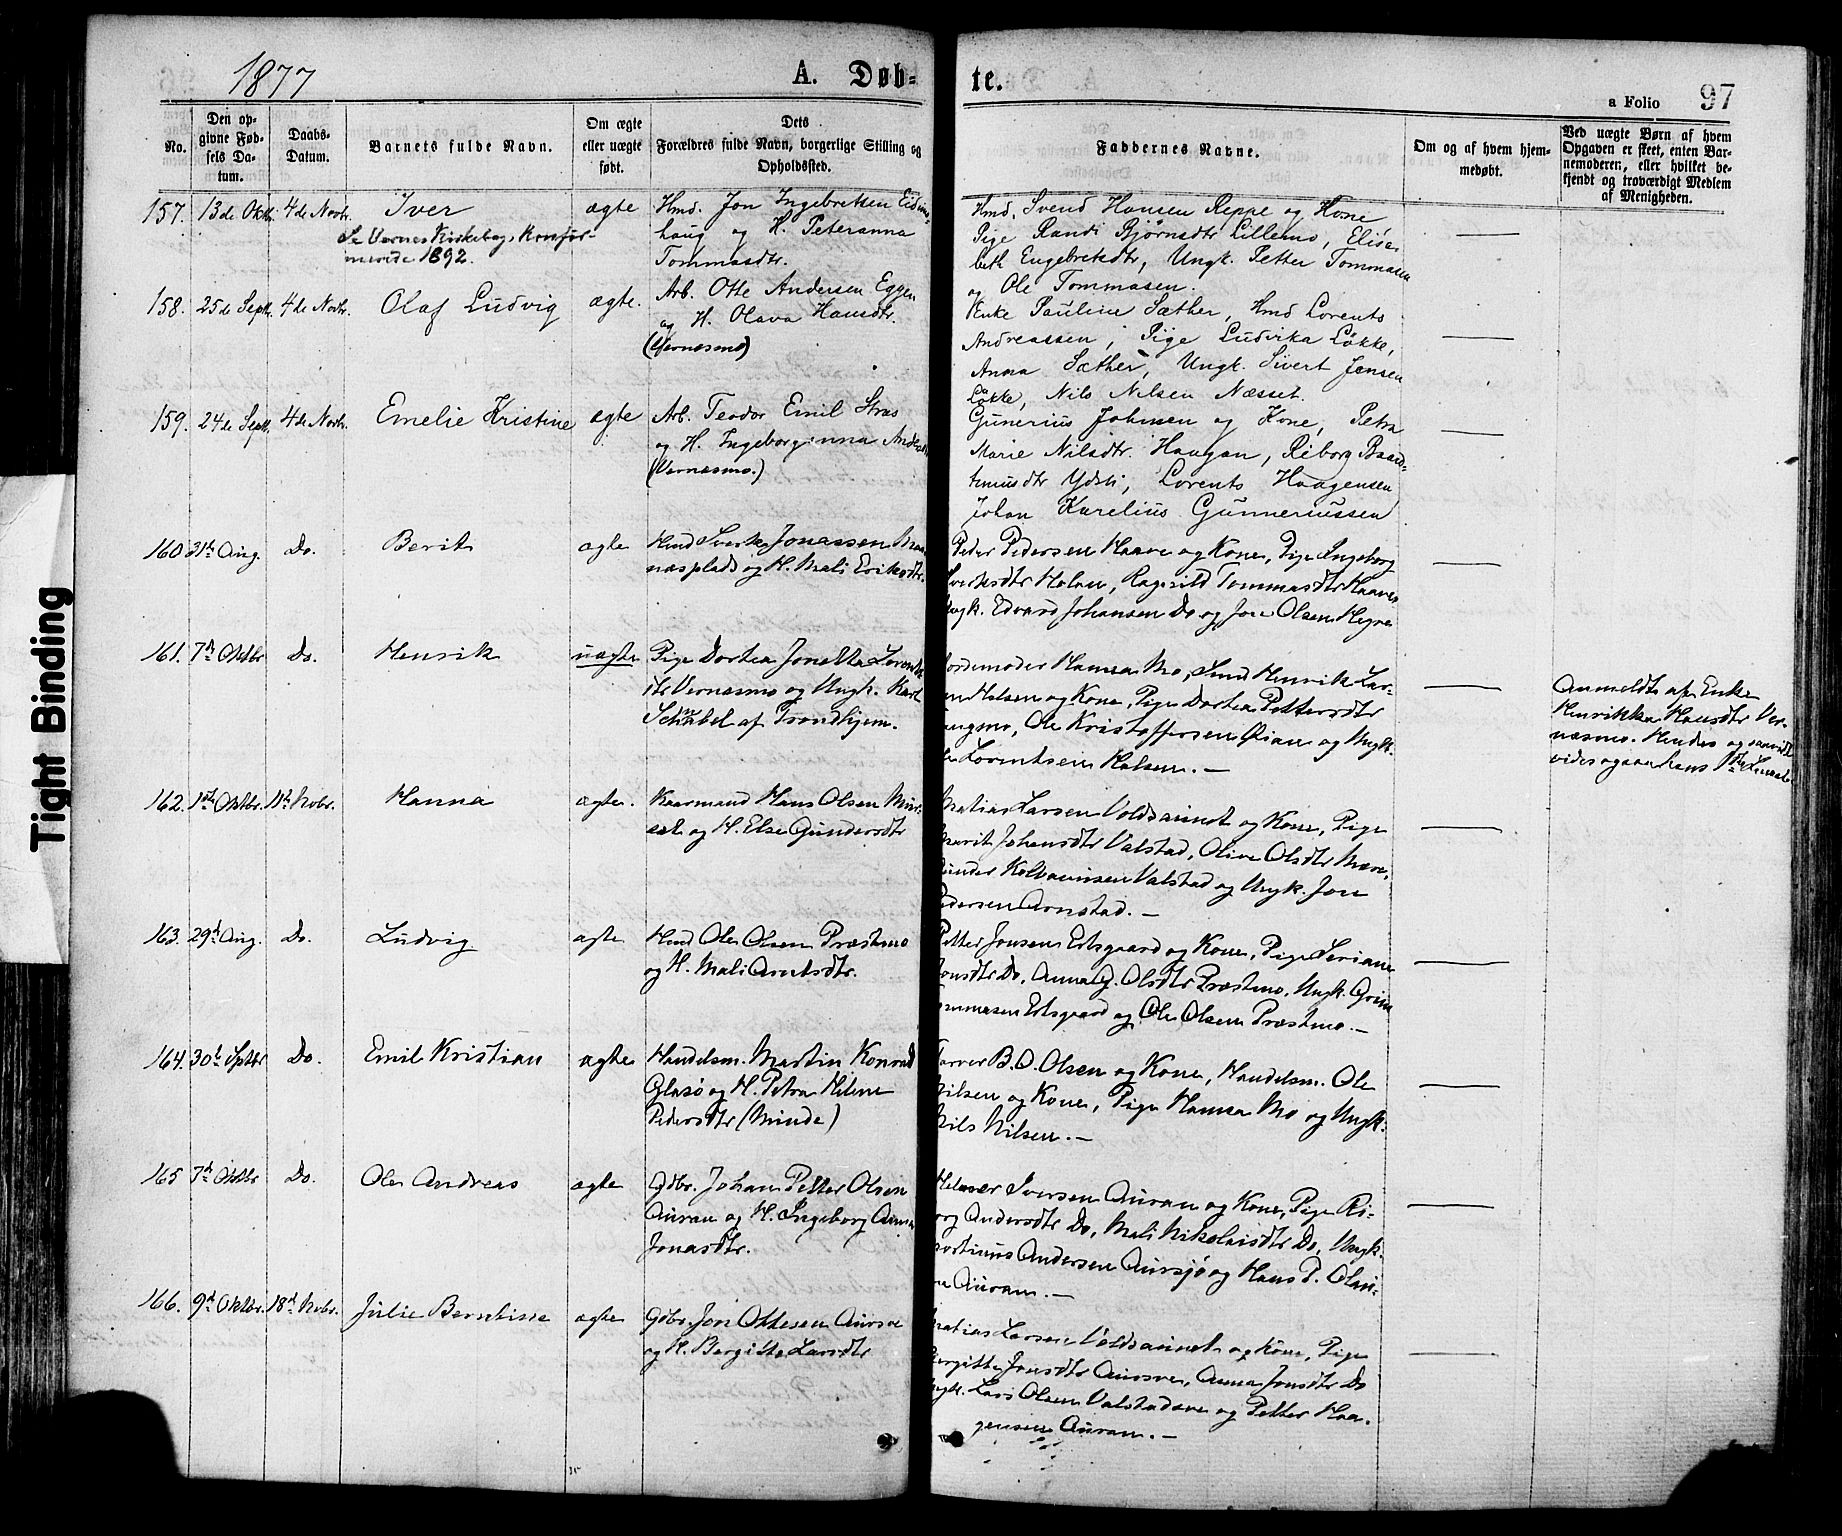 1877
A. Døb-
te.
a Folio 97
No.
Den op-
givne Fød-
sels Da-
tum.
Daabs-
Datum.
Barnets fulde Navn.
Om ægte
eller uægte
født.
Dets
Forældres fulde Navn, borgerlige Stilling og
Opholdssted.
Faddernes Navne.
Om og af hvem hjem-
medøbt.
Ved uægte Børn af hvem
Opgaven er skeet, enten Bar-
nemoderen, eller hvilket be-
kjendt og troværdigt Medlem
af Menigheden.
157. 13de Oktbr. 4de Novbr. Iver ægte
Se Vernes Kirkebog, Konfir-
merede 1892.
Hmd. Jon Ingebretsen Eidum
haug og H. Peteranna
Tommasdtr.
Hmd. Svend Hansen Reppe og Kone
Pige Randi Bjørnsdtr Lillemo, Elisa-
beth Engebretsdtr, Ungk. Petter Tommasen
og Ole Tommasen.
158. 25de Septr. 4de Novbr. Olaf Ludvig ægte.
Arb. Otte Andersen Eggen
og H. Olava Hansdtr.
(Vernesmo)
Enke Pauline Sæther, Hmd Lorents
Andreassen, Pige Ludvika Løkke,
Anna Sæther, Ungk. Sivert Jensen
Løkke, Nils Nilsen Næsset.
159. 24de Septr. 4de Novbr. Emelie Kristine ægte
Arb. Teodor Emil Stras
og H. Ingeborganna Anders
(Vernesmo.)
Gunerius Johnsen og Kone, Petra
Marie Nilsdtr. Haugan, Riborg Baard-
Ydsti, Lorents Haagensen
Johan Karelius Gunneriussen
160. 31te Aug. Do. Berit ægte
Hmd Sverke Jonassen Mæ-
næsplads og H. Mali Eriksdtr.
Peder Pedersen Haave og Kone, Pige Ingeborg
Sverksdtr Holan, Ragnild Tommasdtr Haave
Ungk. Edvard Johansen Do og Jon Olsen Hegre
161. 7de Oktbr Do. Henrik uægte
Pige Dortea Jonetta Lorents
dtr Vernesmo og Ungk. Karl
Schnabel af Trondhjem.
Jordemoder Hansa Mo, Smed Henrik Lar-
sen Halsen og Kone, Pige Dortea Pettersdtr
Langmo, Ole Kristoffersen Øian og Ungk.
Lorentsen Halsen. —
Anmeldt af Enke
Henrikka Hansdtr Ver-
nesmo. Hendes og saavidt
vides ogsaa hans 1ste Leierm.
162. 1ste Oktbr. 11te Novbr. Hanna ægte.
Kaarmand Hans Olsen Mur-
og H. Else Gundersdtr
Matias Larsen Voldsaunet og Kone, Pige
Marit Johansdtr Valstad, Olive Olsdtr Mære,
Gunder Kolbeinsen Valstad og Ungk. Jon
Pedersen Arnstad. —
163. 29de Aug. Do. Ludvig ægte
Hmd Ole Olsen Præstmo
og H. Mali Arntsdtr.
Petter Jonsen Ertsgaard og Kone, Pige Seriane
Jonsdtr Do, Anna G. Olsdtr Præstmo, Ungk.
Tommasen Ertsgaard og Ole Olsen Præstmo. —
164. 30te Septbr Do. Emil Kristian ægte
Handelsm. Martin Konrad
Glasø og H. Petra Helene
Pedersdtr (Minde)
Garver B. O. Olsen og Kone, Handelsm. Ole
Nilsen og Kone, Pige Hansa Mo og Ungk.
Nils Nilsen. —
165 7de Oktbr Do. Ole Andreas ægte
Gdbr. Johan Petter Olsen
Auran og H. Ingeborg Anna
Jonasdtr.
Helmer Iversen Auran og Kone, Pige Ri-
borg Andersdtr Do, Mali Nikolaisdtr Do, Ungk.
Martinus Andersen Aursjø og Hans P. Olau-
sen Auran. —
166. 9de Oktbr. 18de Novbr. Julie Berntine ægte
Gdbr. Jon Ottesen Aursve
og H. Bergitte Larsdtr
Matias Larsen Voldsaunet og Kone, Pige
Bergitte Jonsdtr Aursve, Anna Jonsdtr Do
Ungk. Lars Olsen Valstadsve og Petter Haa-
gensen Auran. —
Tight Binding